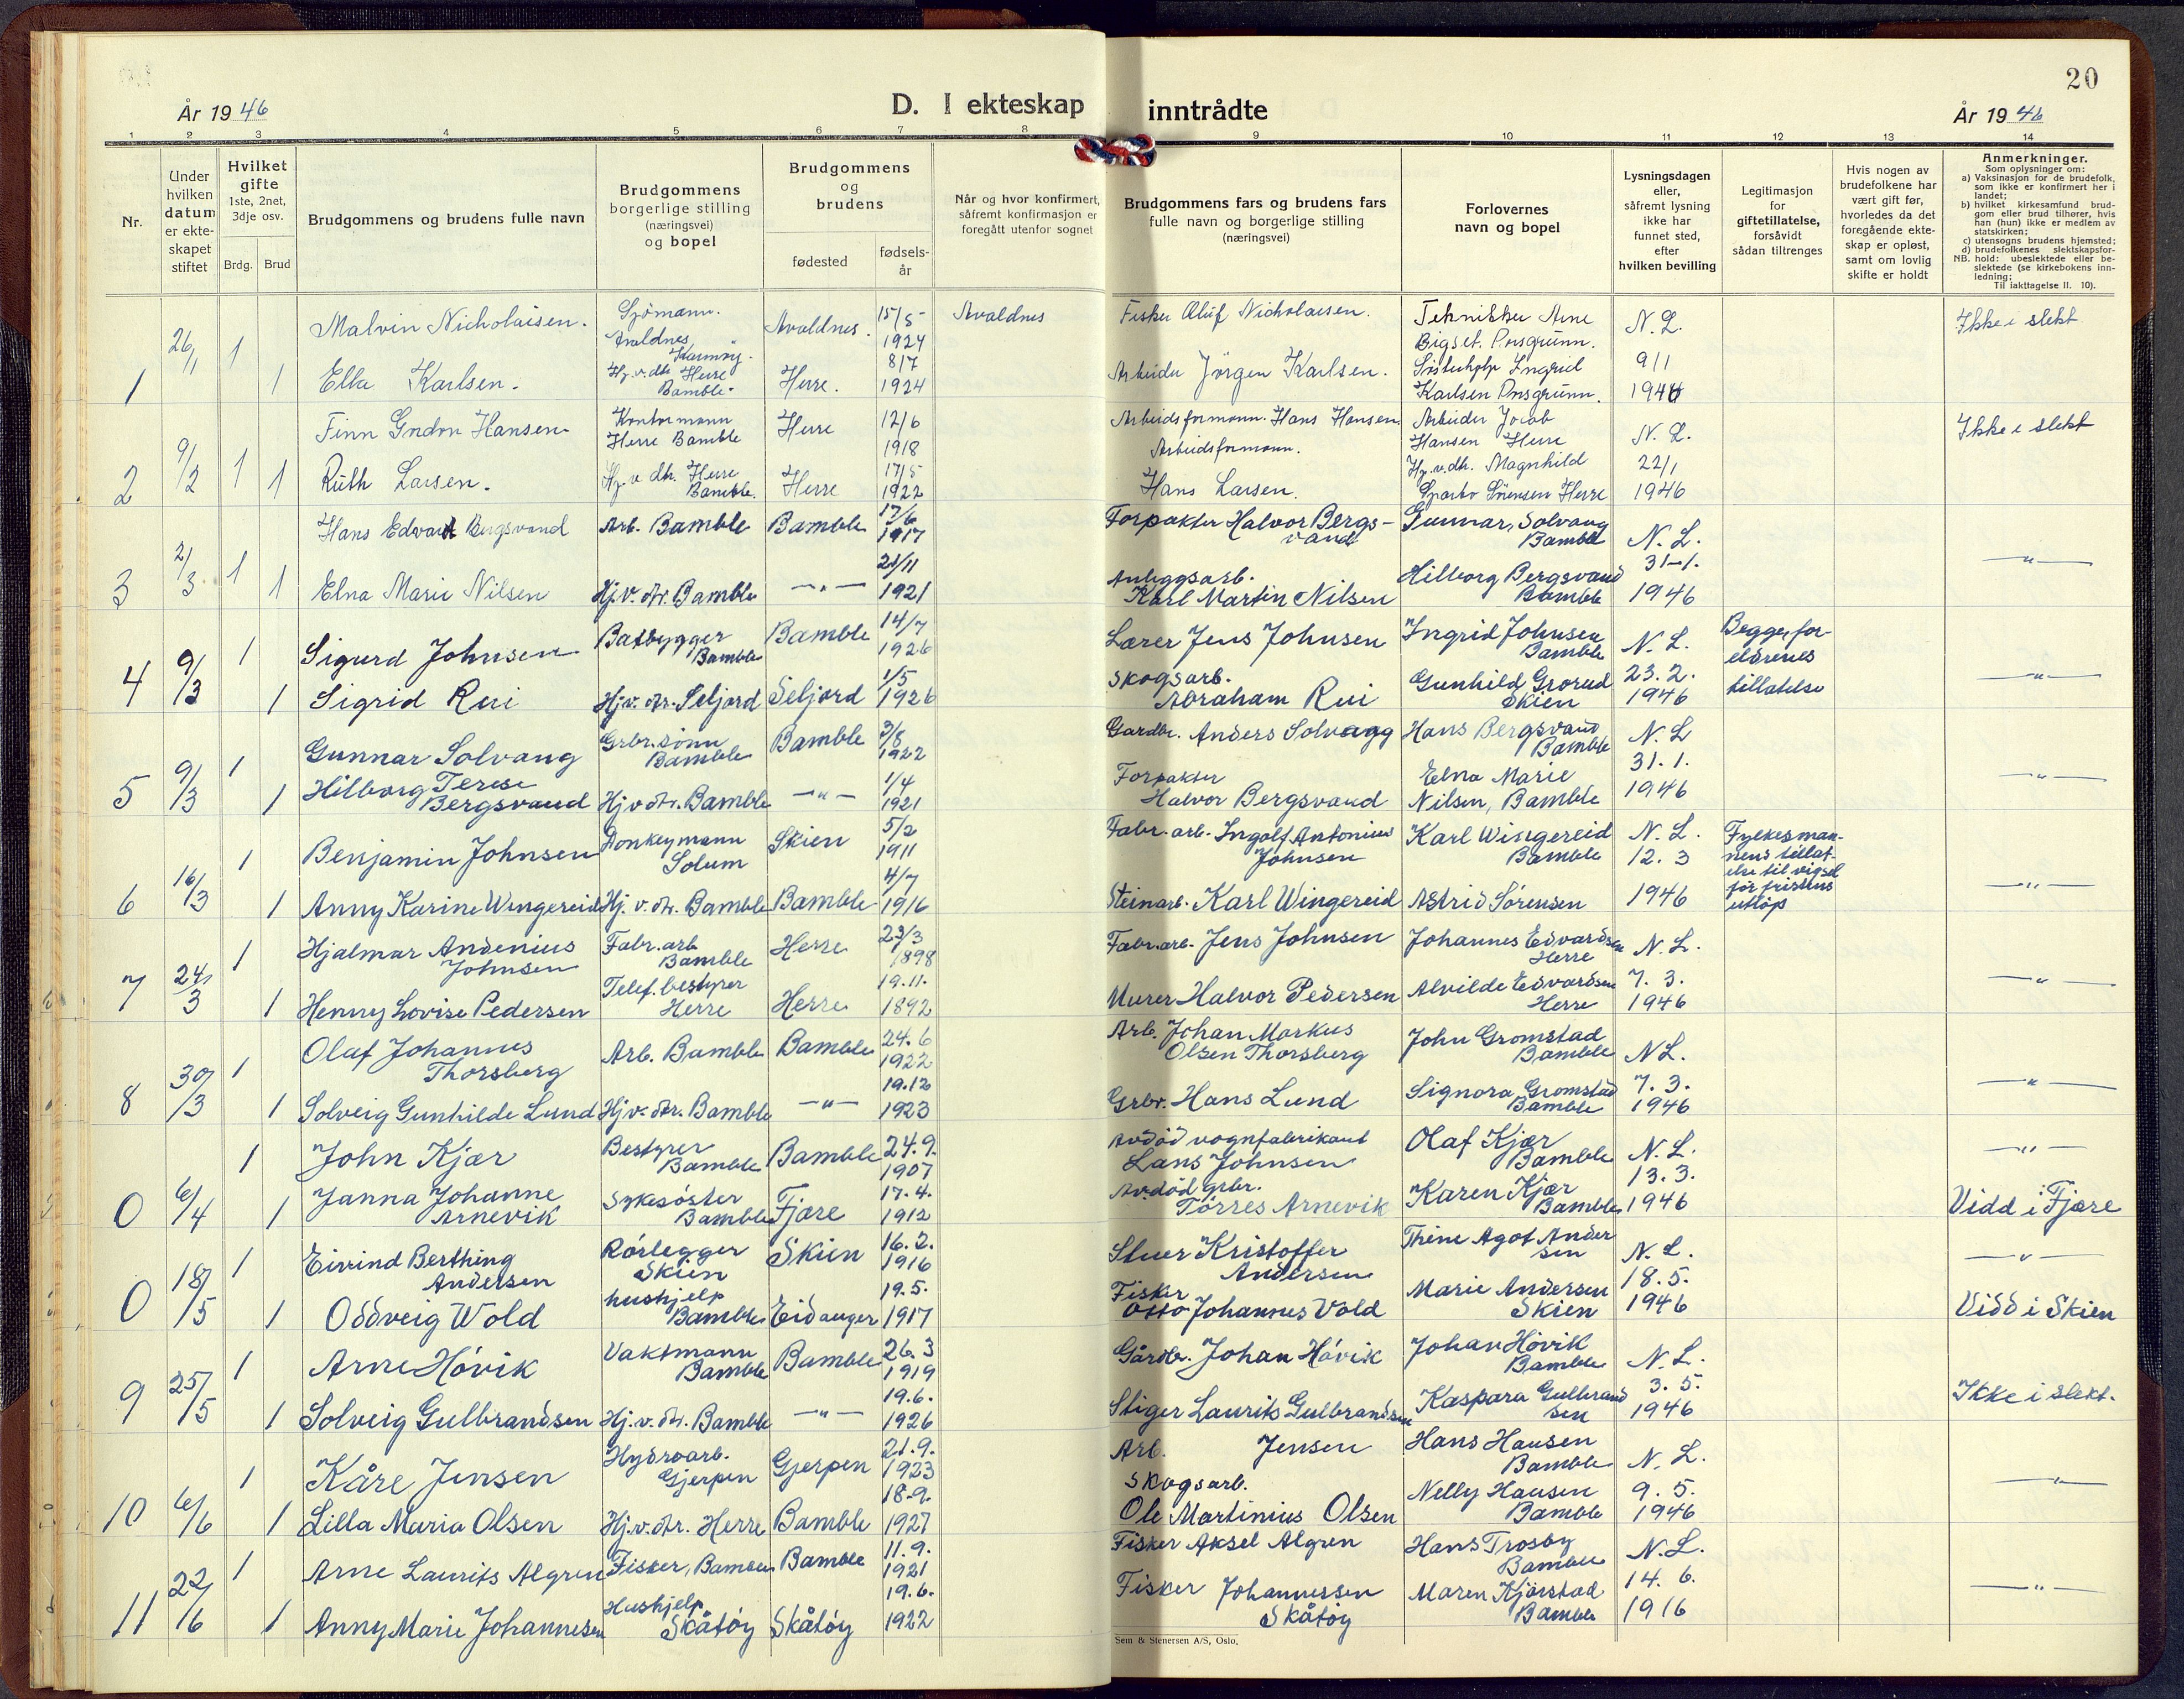 20
År 1946
D. I ekteskap inntrådte
År 1946
1 2 3 4 5 6 7 8 9 10 11 12 13 14
Nr.
Under hvilken datum er ekteskapet stiftet
Hvilket gifte 1ste, 2net, 3dje osv.
Brdg. Brud
Brudgommens og brudens fulle navn
Brudgommens borgerlige stilling (næringsvei) og bopel
Brudgommens og brudens
fødested
fødsels-år
Når og hvor konfirmert, såfremt konfirmasjon er foregått utenfor sognet
Brudgommens fars og brudens fars fulle navn og borgerlige stilling (næringsvei)
Forlovernes navn og bopel
Lysningsdagen eller, såfremt lysning ikke har funnet sted, efter hvilken bevilling
Legitimasjon for giftetillatelse, forsåvidt sådan tiltrenges
Hvis nogen av brudefolkene har vært gift før, hvorledes da det foregående ekteskap er opløst, samt om lovlig skifte er holdt
Anmerkninger.
Som oplysninger om:
a) Vaksinasjon for de brudefolk, som ikke er konfirmert her i landet;
b) hvilket kirkesamfund brudgom eller brud tilhører, hvis han (hun) ikke er medlem av statskirken;
c) utensogns brudens hjemsted;
d) brudefolkenes slektskapsforhold: ubeslektede eller beslektede (se kirkebokens innledning;
NB.
Til iakttagelse II. 10).
1 26/1 1 Malvin Nicholaisen. Sjömann. Avaldnes, Karmöy. Avaldnes. 15/5 1924 Avaldnes Fisker Oluf Nicholaisen. Tekniker Arne Bigset. Porsgrunn. N. L. Ikke i slekt
1 Ella Karlsen. Hj. v. dtr. Herre Bamble. Herre. 8/7 1924 Arbeider Jörgen Karlsen. Ingrid Karlsen Porsgrunn. 9/1
2 9/2 1 Finn Gordon Hansen. Kontormann Herre Bamble Herre 12/6 1918 Arbeidsformann. Hans Hansen. Arbeider Jacob Hansen Herre N. L. Ikke i slekt
1 Ruth Larsen. Hj. v. dtr. Herre Bamble. Herre 17/5 1922 Arbeidsformann. Hans Larsen. Hj. v. dtr. Magnhild Sörensen Herre 22/1 1946
3 2/3 1 Hans Edvart Bergsvand Arb. Bamble Bamble 17/6 1917 Forpakter Halvor Bergsvand Gunnar Solvang Bamble N. L.
1 Elna Marie Nilsen Hj. v. dtr. Bamble —"— 21/11 1921 Anleggsarb. Karl Martin Nilsen Hilborg Bergsvand Bamble 31-1. 1946 —"—
4 9/3 1 Sigurd Johnsen Båtbygger Bamble Bamble 14/7 1926 Lærer Jens Johnsen Ingrid Johnsen Bamble N. L. Begge foreldrenes tillatelse
1 Sigrid Rui Hj. v. dtr. Seljord Seljord 1/5 1926 Skogsarb. Abraham Rui Gunhild Grorud Skien 23. 2. 1946 —"—
5 9/3 1 Gunnar Solvang Grbr. sönn Bamble Bamble 3/8 1922 Gardbr. Anders Solvang Hans Bergsvand Bamble N. L
1 Hilborg Terese Bergsvand Hj v dtr. Bamble —"— 1/4 1921 Forpakter Halvor Bergsvand Elna Marie Nilsen, Bamble 31. 1. 1946 —"—
6 16/3 1 Benjamin Johnsen Donkeymann Solum Skien 5/2 1911 Fabr. arb. Ingolf Antonius Johnsen Karl Wingereid Bamble N. L. Fylkesmannens tillatelse til vigsel för fristens utlöp
1 Anny Karine Wingereid Hj. v. dtr. Bamble Bamble 4/7 1916 Steinarb. Karl Wingereid Astrid Sörensen 12. 3 1946 —"—
7 24/3 1 Hjalmar Andenius Johnsen Fabr. arb Bamble Herre 23/3 1898 Fabr. arb. Jens Johnsen Johannes Edvardsen Herre N. L.
1 Henny Lovise Pedersen Telef. bestyrer Herre Herre 19. 11. 1892 Murer Halvor Pedersen Alvilde Edvardsen Herre 7. 3. 1946 —"—
8 30/3 1 Olaf Johannes Thorsberg Arb. Bamble Bamble 24. 6 1922 Arb. Johan Markus Olsen Thorsberg John Gromstad Bamble N L.
1 Solveig Gunhilde Lund Hj v. dtr. Bamble —"— 19. 12 1923 Grbr. Hans Lund Signora Gromstad Bamble 7. 3. 1946 —"—
0 6/4 1 John Kjær Bestyrer Bamble Bamble 24. 9. 1907 Avdöd vognfabrikant Lans Johnsen Olaf Kjær Bamble N. L. —"—
1 Janna Johanne Arnevik Sykesöster Bamble Fjære 17. 4. 1912 Avdöd grbr. Törres Arnevik Karen Kjær Bamble 13. 3. 1946 Vidd i Fjære
0 18/5 1 Eivind Berthing Andersen Rörlegger Skien Skien 16. 2. 1916 Stuer Kristoffer Andersen Thine Agot Andersen N. L. —"—
1 Oddveig Wold hushjelp Bamble Eidanger 19. 5. 1917 Fisker Otto Johannes Vold Marie Andersen Skien 18. 5. 1946 Vidd i Skien
9 25/5 1 Arne Hövik Vaktmann Bamble Bamble 26. 3 1919 Gårdbr. Johan Hövik Johan Hövik Bamble N. L.
1 Solveig Gulbrandsen Hj. v. dtr. Bamble —"— 19. 6. 1926 Stiger Laurits Gulbrandsen Kaspara Gulbrandsen 3. 5. 1946 Ikke i slekt.
10 6/6 1 Kåre Jensen Hydroarb. Gjerpen Gjerpen 21. 9. 1923 Arb. Jensen Hans Hansen Bamble N. L.
1 Lilla Maria Olsen Hj. v. dtr. Herre Bamble 18. 9. 1927 Skogsarb. Ole Martinius Olsen Nelly Hansen Bamble 9. 5. 1946 —"—
11 22/6 1 Arne Laurits Algren Fisker, Bamble Bamble 11. 9. 1921 Fisker Aksel Algren Hans Trosby Bamble N. L.
1 Anny Marie Johannesen Hushjelp Skåtöy Skåtöy 19. 6. 1922 Fisker Johannessen Skåtöy Maren Kjörstad Bamble 14. 6. 1916 —"—
Sem & Stenersen A/S, Oslo.